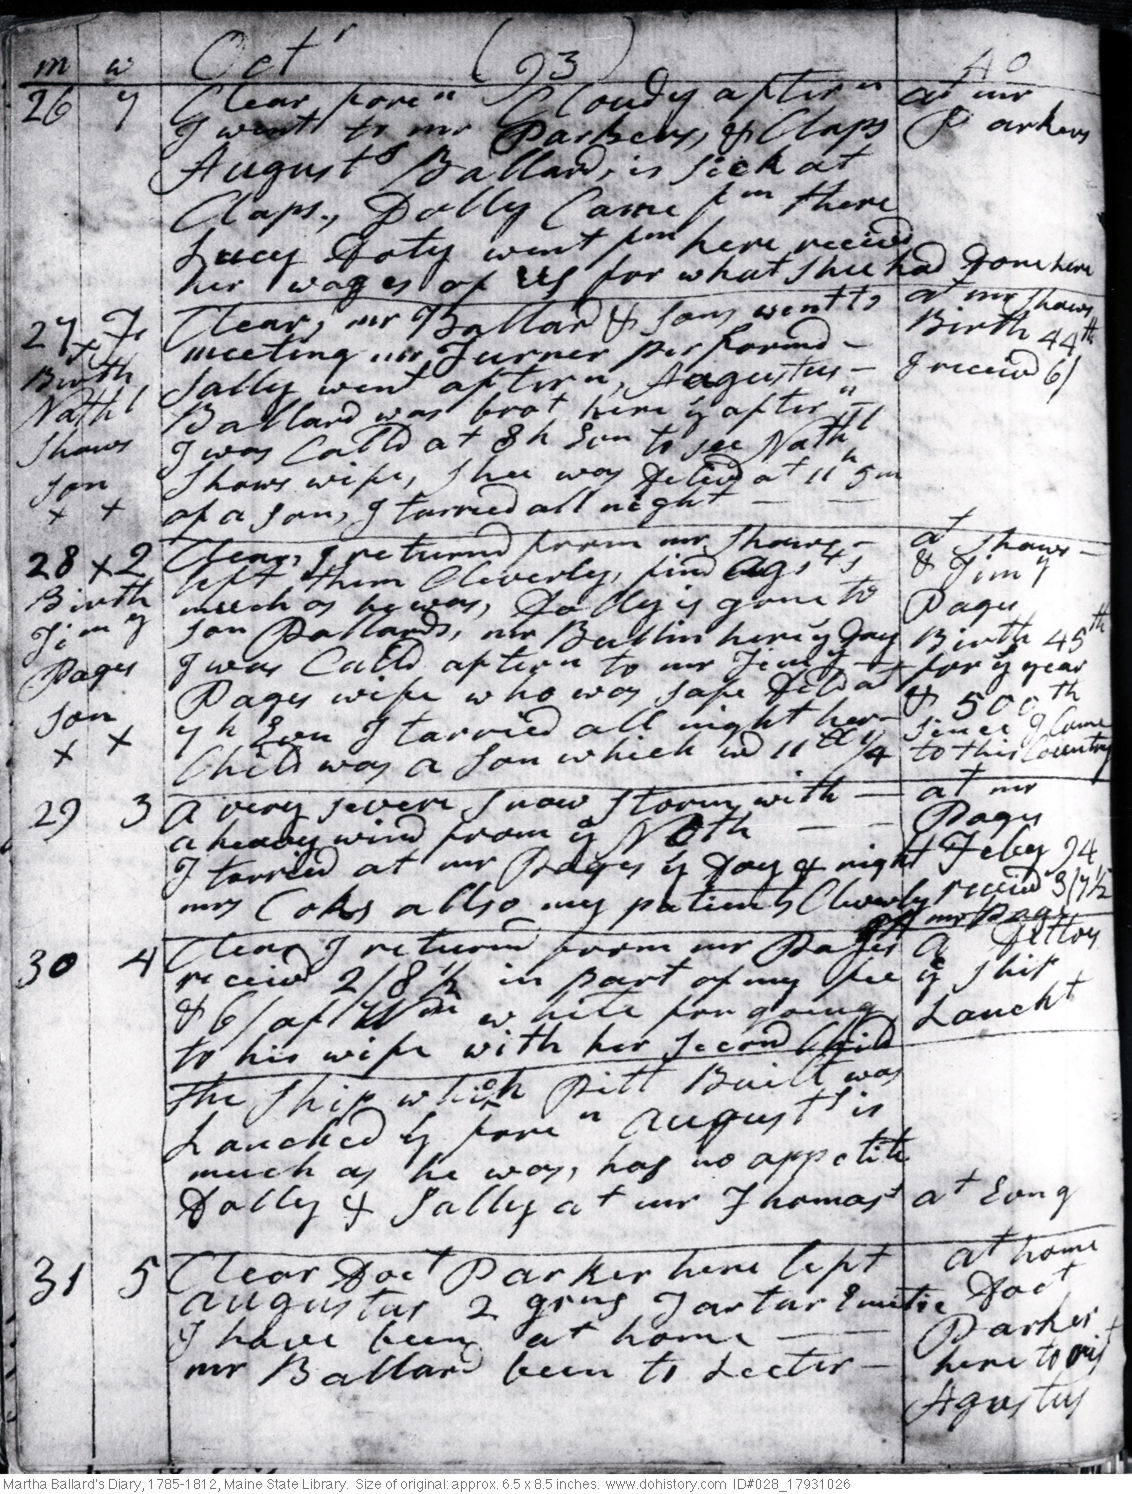 m w Octr (93) 40
26 7 Clear foren Cloudy aftern at mr
I went to mr Parkers, & Claps Parkers
Augusts Ballard, is sick at
Claps., Dolly Came fm there
Lucy Doty went fm here received
her wages of us for what shee had Done here
27 F Clear, mr Ballard & sons went to at mr Shaws
x x meeting mr Turner performd – Birth 44th
Birth Sally went aftern, Augustus – I receivd 6/
Nathl Ballard was brot here ye aftern
Shaws I was Calld at 8 h Evn to see Nathl
son Shaws wife, shee was Delivd at 11 h Evn
x x of a son, I tarried all night – –
28 x 2 Clear, I returnd from mr Shaws – at Shaws –
Birth left them Cleverly, find Agsts & Jimy
Jimy much as he was, Dolly is gone to Pages
Pages son Pollards, mr Bullin here ye Day Birth 45th
son I was Calld aftern to mr Jimy – for ye year
x x Pages wife who was safe Deld at & 500th
7 h Evn I tarried all night her – since I Came
Child was a son which wd 11 lb 1/4 to this Country
29 3 A very severe snow storm with – at mr
a heavy wind from ye North – – Pages
I tarried at mr Pages ye Day & night Feby 24
mrs Coks allso my patients Cleverly receivd 3/7 1/2
of mr Page
30 4 Clear I returnd from mr Pages at Dittoes
receivd 2/8 1/2 in part of my fee ye ship
& 6/ of Wm white for going Lancht
to his wife with her second Child
the ship which Pitt Built was
Lanched ye foren August is
much as he was, has no appetite
Dolly & Sally at mr Thomas at Evng
31 5 Clear Doct Parker here left at home
augustus 2 grns Tartar Emetic Doct
I have been at home – – Parker
mr Ballard been to Lecter – here to visit
Agustus
Martha Ballard's Diary, 1785-1812, Maine State Library. Size of original: approx. 6.5 x 8.5 inches. www.dohistory.com ID#028_17931026